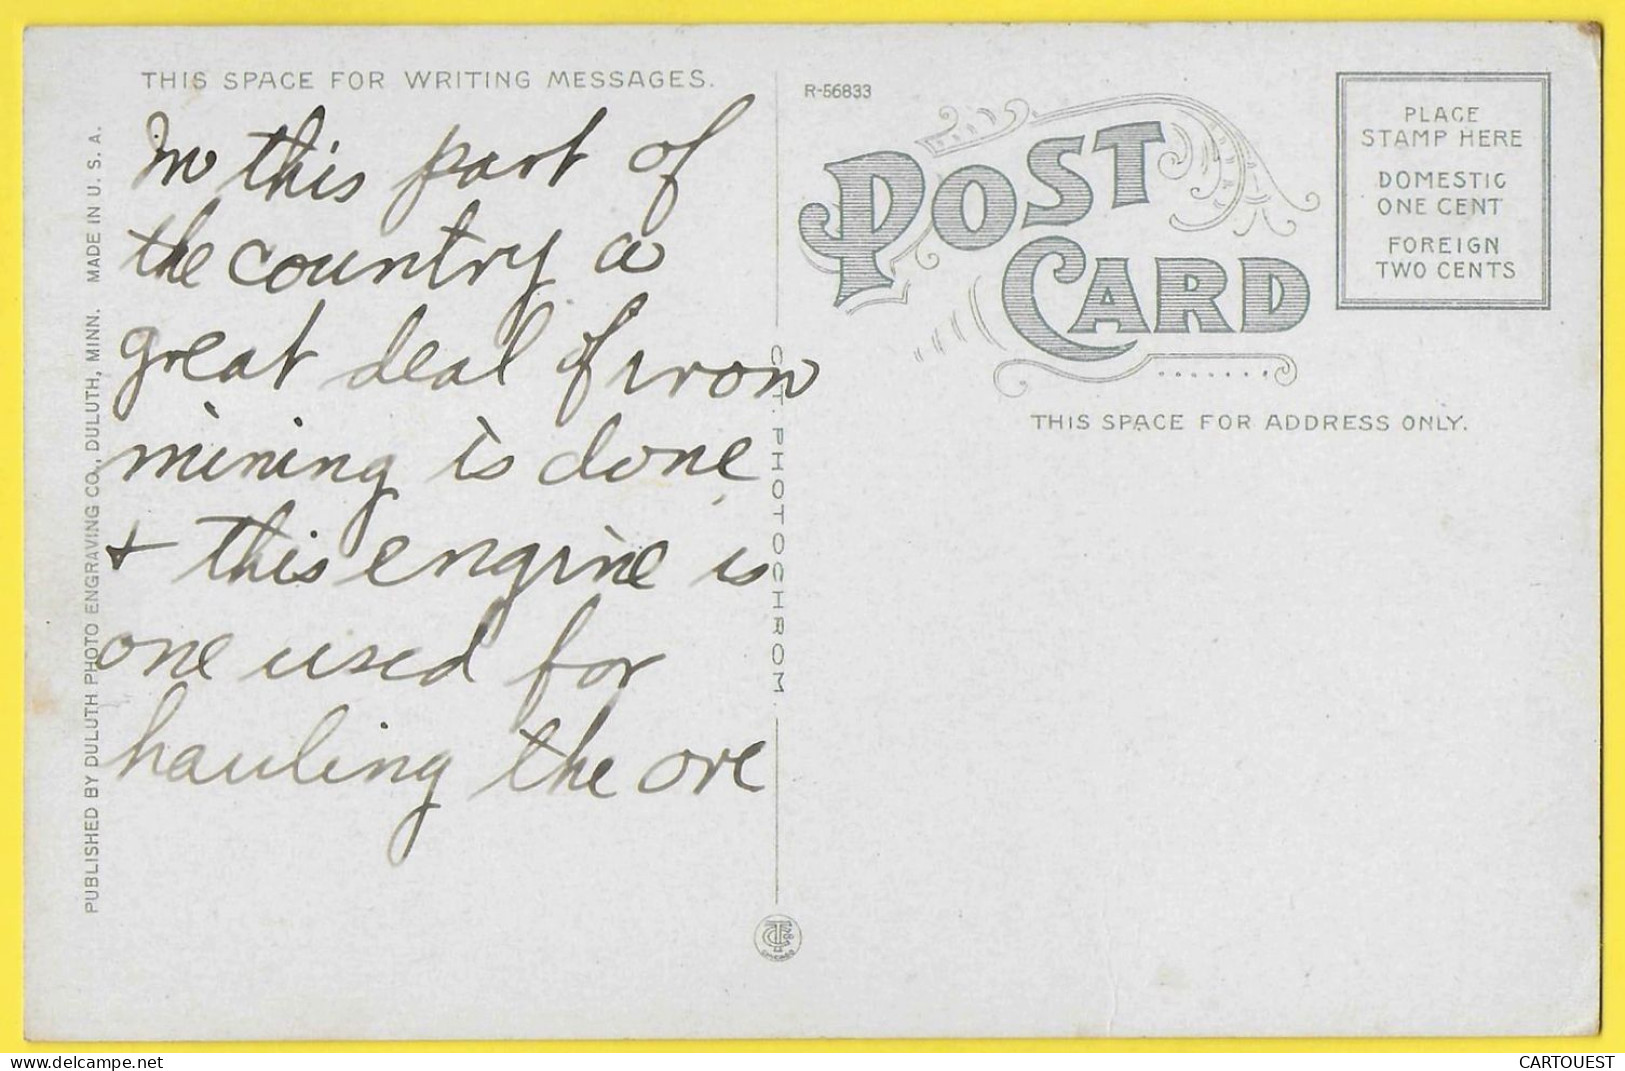 THIS SPACE FOR WRITING MESSAGES.
In this part of
the country a
great deal of iron
mining is done
+ this engine is
one used for
hauling the ore
PUBLISHED BY DULUTH PHOTO ENGRAVING CO., DULUTH, MINN. MADE IN U. S. A.
C. T. PHOTOCHROM.
R-56833
POST
CARD
PLACE
STAMP HERE
DOMESTIC
ONE CENT
FOREIGN
TWO CENTS
THIS SPACE FOR ADDRESS ONLY.
CHICAGO
www.delcampe.net
CARTOUEST